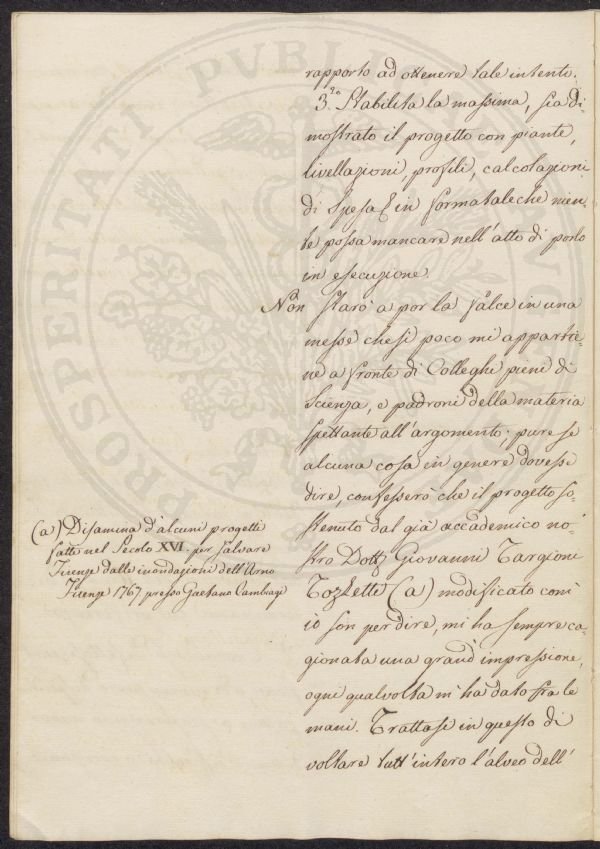 rapporto ad ottenere tale intento.
3.zo Stabilita la massima, sia di=
mostrato il progetto con piante,
livellazioni, profili, calcolazioni
di Spesa in forma tale che nien=
te possa mancare nell'atto di porlo
in esecuzione.
Non starò a por la falce in una
messe che sì poco mi appartie=
ne a fronte di Colleghi pieni di
Scienza, e padroni della materia
spettante all'argomento; pure se
alcuna cosa in genere dovessi
dire, confesserò che il progetto so=
stenuto dal già accademico no=
stro Dott Giovanni Targioni
Tozzetti (a) modificato com'
io son per dire, mi ha sempre ca=
gionata una grand'impressione,
ogni qualvolta m'ha dato fra le
mani. Trattasi in questo di
voltare tutt'intero l'alveo dell'
(a) Disamina d'alcuni progetti
fatti nel Secolo XVI. per salvare
Firenze dalle inondazioni dell'Arno
Firenze 1767 presso Gaetano Cambiagi
PROSPERITATI PVBLICAE